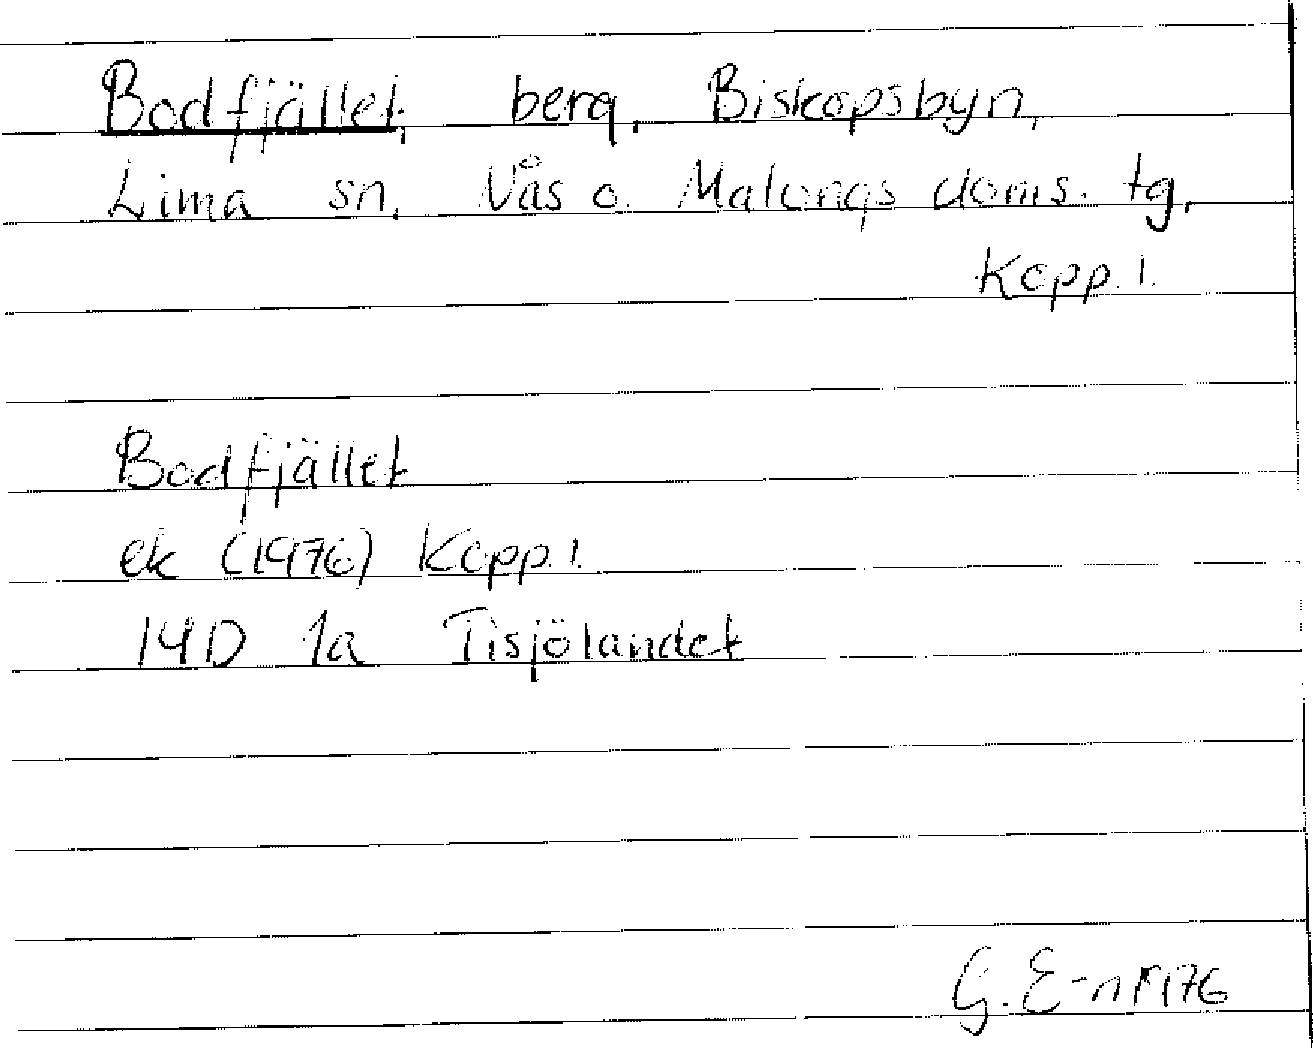 Bodfjället, berg, Biskopsbyn,
Lima sn, Nås o. Malungs doms. tg,
Kopp. l.
Bodfjället
ek (1976) Kopp. l.
14D 1a Tisjölandet
G. E-n 1976